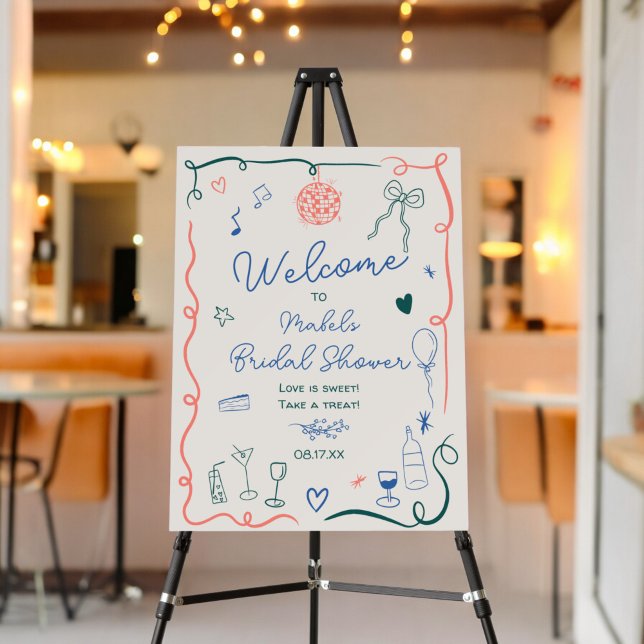 Welcome
TO
Mabels
Bridal Shower
LOVE IS SWEET!
TAKE A TREAT!
08.17.XX